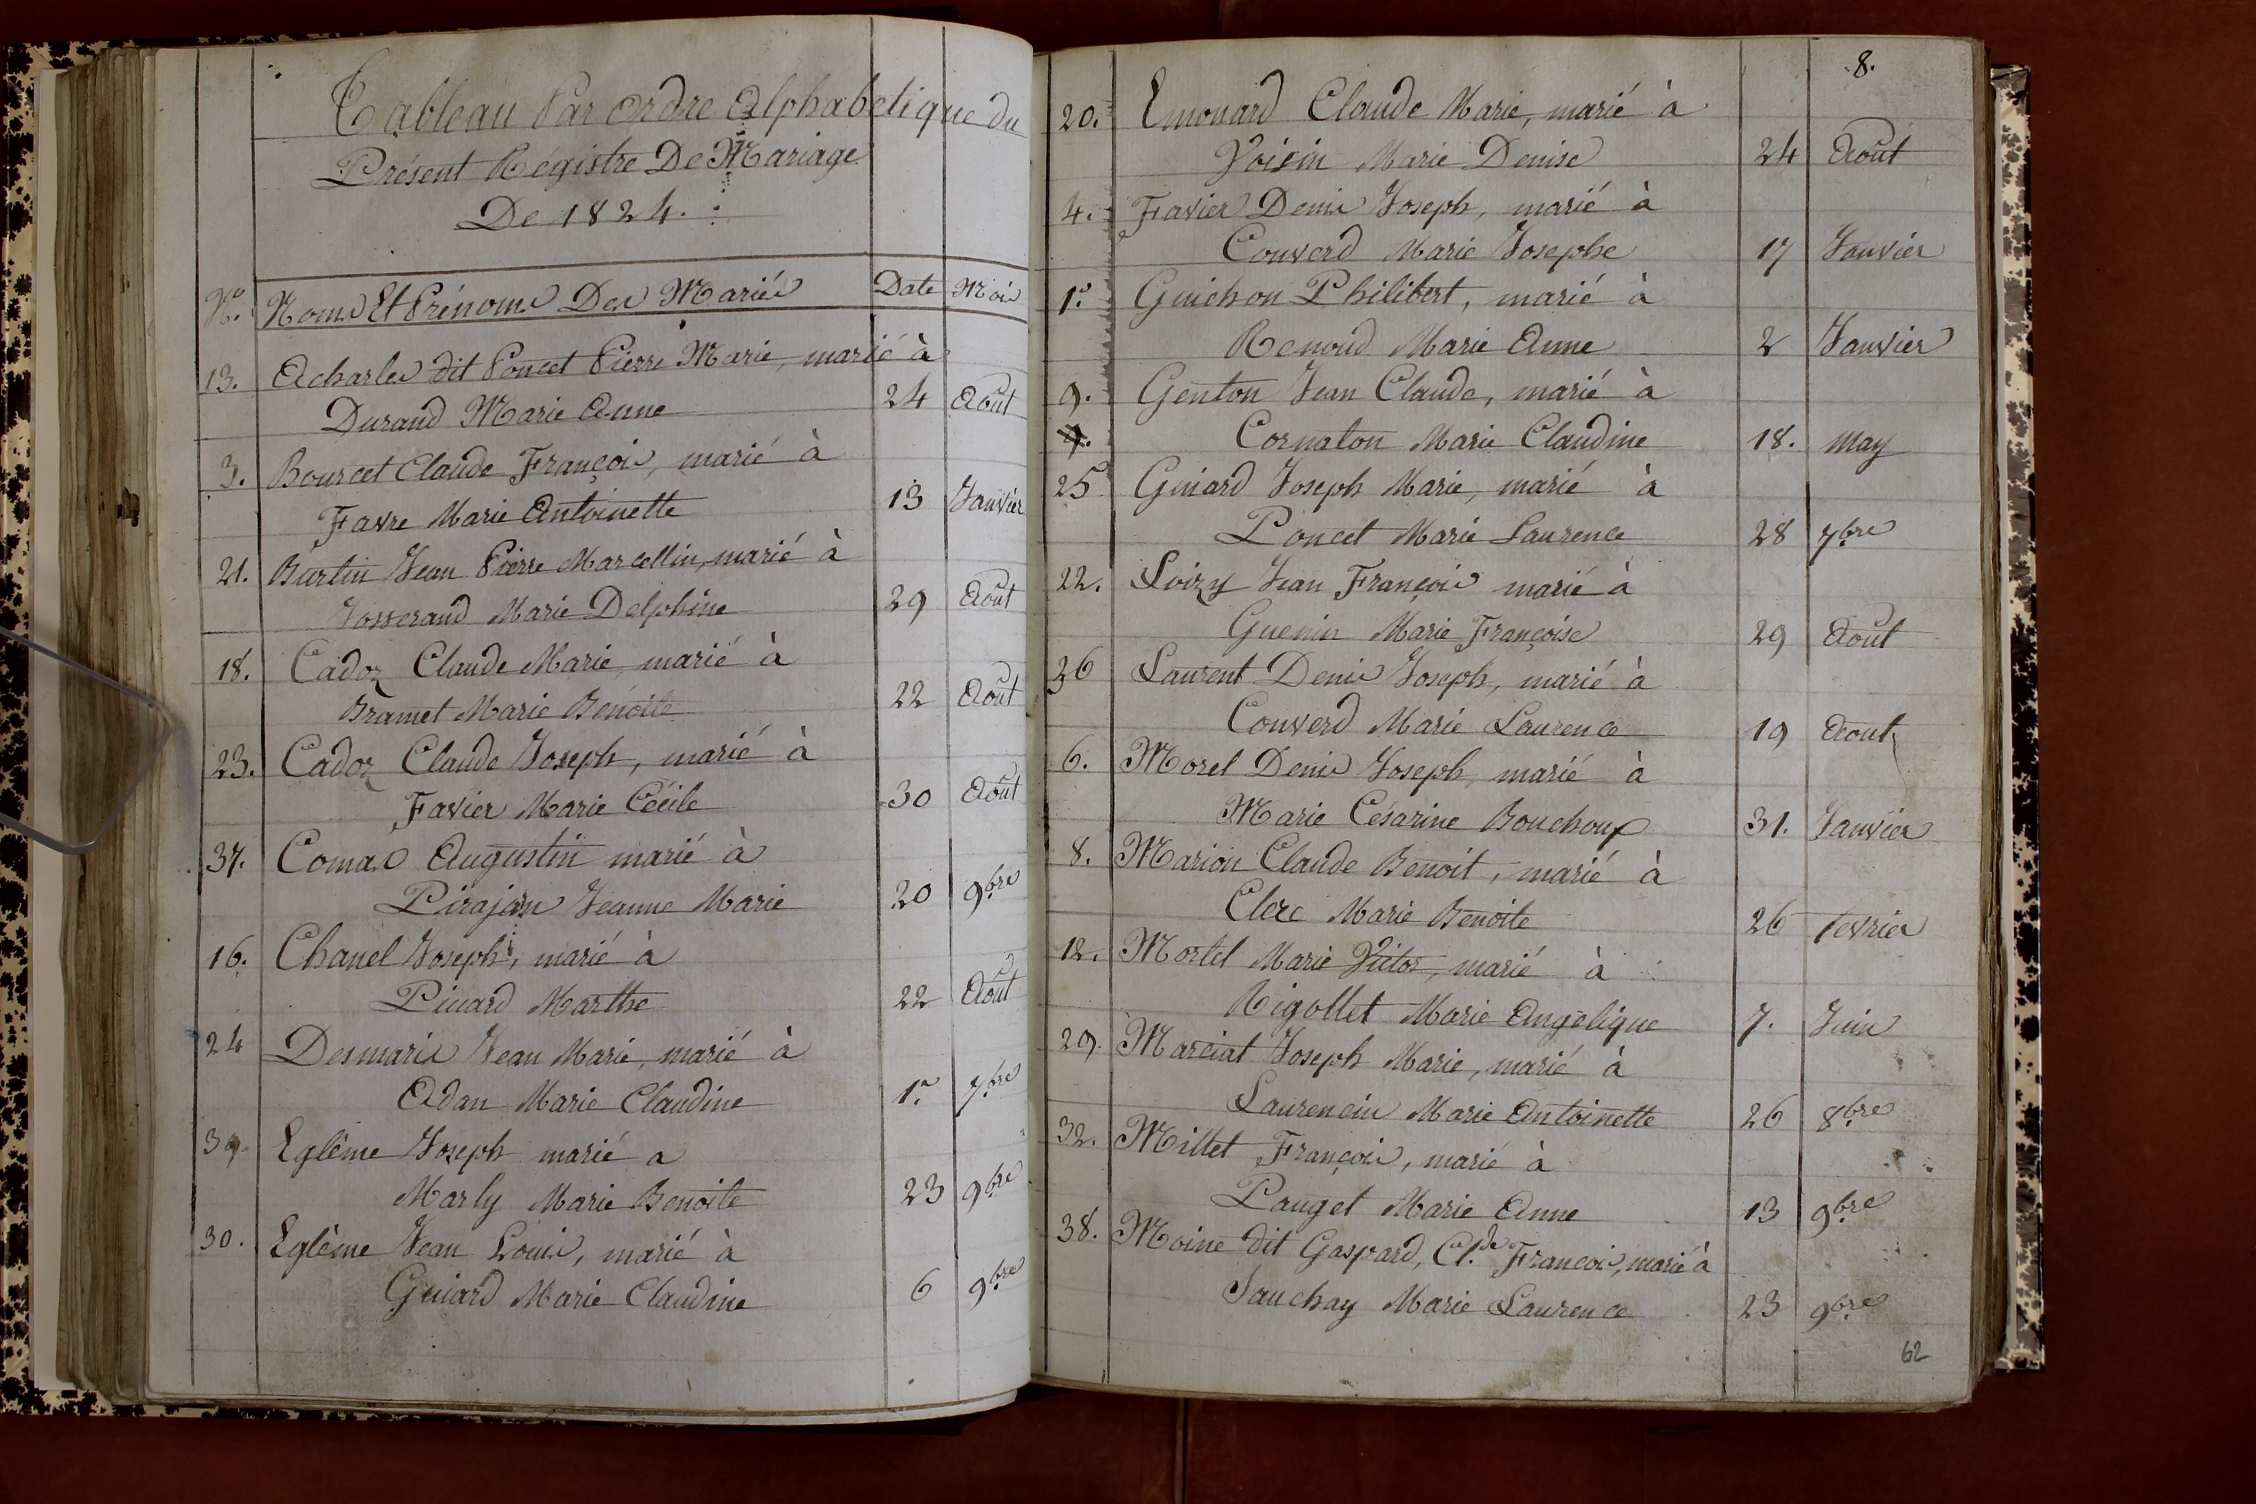 Tableau Par Ordre Alphabetique du
Présent Régistre De Mariage
De 1824.
N.º Noms Et Prénoms Des Mariés Date Mois
13. Acharles dit Poncet Pierre Marie, marié à
Durand Marie Anne 24 Août
3. Bourcet Claude François, marié à
Favre Marie Antoinette 13 Janvier
21. Burtin Jean Pierre Marcellin, marié à
Josserand Marie Delphine 29 Août
18. Cadoz Claude Marie, marié à
Bramet Marie Benoite 22 Août
23. Cadoz Claude Joseph, marié à
Favier Marie Cécile 30 Août
37. Comas Augustin marié à
Pirajan Jeanne Marie 20 9bre
16. Chanel Joseph, marié à
Picard Marthe 22 Août
24 Desmaris Jean Marie, marié à
Adan Marie Claudine 1.er 7bre
39. Eglème Joseph marié a
Marly Marie Benoite 23 9bre
30. Eglème Jean Louis, marié à
Guiard Marie Claudine 6 9bre
8.
20. Emouard Claude Marie, marié à
Voisin Marie Denise 24 Août
4. Favier Denis Joseph, marié à
Converd Marie Josephe 17 Janvier
1.º Guichon Philibert, marié à
Renoud Marie Anne 2 Janvier
9. Genton Jean Claude, marié à
Cornaton Marie Claudine 18. may
25 Guiard Joseph Marie, marié à
Poncet Marie Laurence 28 7bre
22. Loizy Jean François marié à
Guenin Marie Françoise 29 Août
36 Laurent Denis Joseph, marié à
Converd Marie Laurence 19 Aout
6. Morel Denis Joseph, marié à
Marie Césarine Bouchoux 31. Janvier
8. Marion Claude Benoit, marié à
Clerc Marie Benoite 26 fevrier
12. Mortel Marie Victor, marié à
Rigollet Marie Angelique 7. Juin
29. Marciat Joseph Marie, marié à
Laurencin Marie Antoinette 26 8bre
32. Millet François, marié à
Pauget Marie Anne 13 9bre
38. Moine dit Gaspard, Cl.de François, marié à
Sauchay Marie Laurence 23 9bre
62